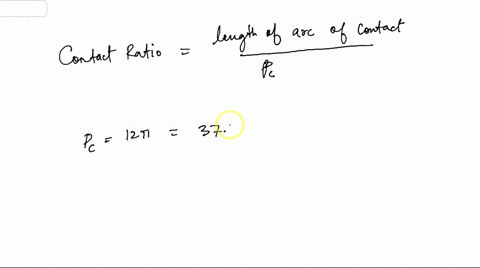 Contact Ratio = length of arc of contact / Pc
Pc = 12π = 37.